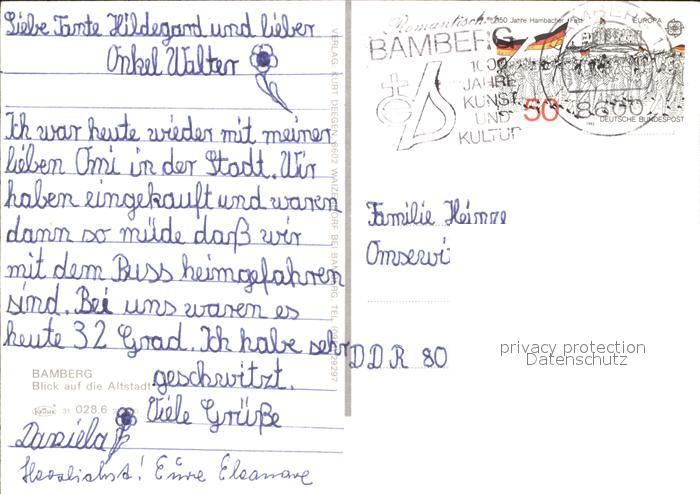 Liebe Tante Hildegard und lieber
Onkel Walter
Ich war heute wieder mit meiner
lieben Omi in der Stadt. Wir
haben eingekauft und waren
dann so müde daß wir
mit dem Buss heimgefahren
sind. Bei uns waren es
heute 32 Grad. Ich habe sehr
geschwitzt.
Viele Grüße
Daniela
Herzlichst! Eure Eleonore
BAMBERG
Blick auf die Altstadt
31 028.6
VERLAG KURT DEEGEN, 8602 WAIZENDORF BEI BAMBERG, TEL.
Romantisches
BAMBERG
1000
JAHRE
KUNST
UND
KULTUR
150 Jahre Hambacher Fest
EUROPA
50
8600
DEUTSCHE BUNDESPOST
Familie Heinne
DDR 80
privacy protection
Datenschutz